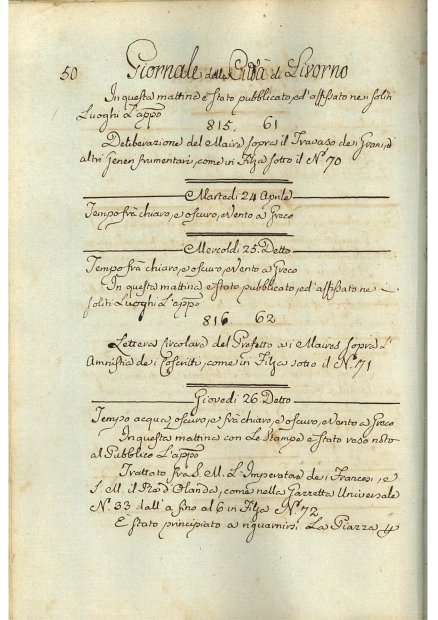 50 Giornale della Città di Livorno
In questa mattina è stato pubblicato, ed'affissato ne i soliti
Luoghi L'appo
815. 61
Deliberazione del Maire sopra il Travaso de i Grani, d'
altri Generi frumentari, come in Filza sotto il N.° 70
Martedi 24 Aprile
Tempo frà chiaro, e oscuro, e Vento a Greco
Mercoldi 25. Detto
Tempo frà chiaro, e oscuro, e Vento a Greco
In questa mattina è stato pubblicato, ed'affissato ne
soliti Luoghi L'appo
816 62
Lettera Circolare del Prefetto a i Maires sopra L'
Amnistia de i Coscritti, come in Filza sotto il N.° 71
Giovedi 26 Detto
Tempo acqua, oscuro, e frà chiaro, e oscuro, e Vento a Greco
In questa mattina con Le Stampe è stato reso noto
al Pubblico L'appo
Trattato frà S. M. L'Imperatore de i Francesi, e
S. M. il Rè d'Olanda, come nella Gazzetta Universale
N.° 33 dall' a fino al 6 in Filza N.° 72
È stato principiato a riguarnirsi La Piazza